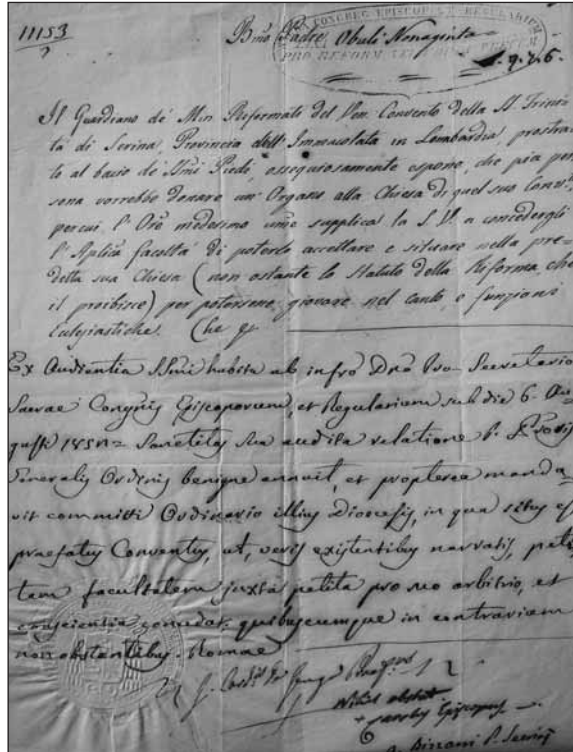 11153
2
CONGREG. EPISCOPOR. ET REGULARIUM
Bmo Padre Obuli Nonaginta
PRO REFORM.
9.7.6.
Il Guardiano de' Min. Reformati del Ven. Convento della SS. Trini=
tà di Serina, Provincia dell'Immacolata in Lombardia, prostra=
to al bacio de' SSmi Piedi, ossequiosamente espone, che pia per=
sona vorrebbe donare un' Organo alla Chiesa di quel suo Conv.to,
percui l'Ore medesimo umie supplica la S. V. a concedergli
l'Aplica facoltà di poterlo accettare e situare nella pre=
detta sua Chiesa (non ostante lo Statuto della Riforma, che
il proibisce) per potersene giovare nel canto, e funzioni
Eclesiastiche. Che &
Ex Audientia SSmi habita ab infro Dno Pro-Secretario
Sacrae Congnis Episcoporum, et Regularium sub die 6. Au=
gusti Sanctitas Sua audita relatione P.
Generalis Ordinis benigne annuit, et propterea manda=
vit committi Ordinario illius Diocesis, in qua situs est
praefatus Conventus, ut, veris existentibus narratis, peti=
tam facultatem juxta petita pro suo arbitrio, et
conscientia concedat. quibuscumque in contrarium
non obstantibus. Romae
Nihil obstat
+ Episcopus
Bizzarri P. Secrius